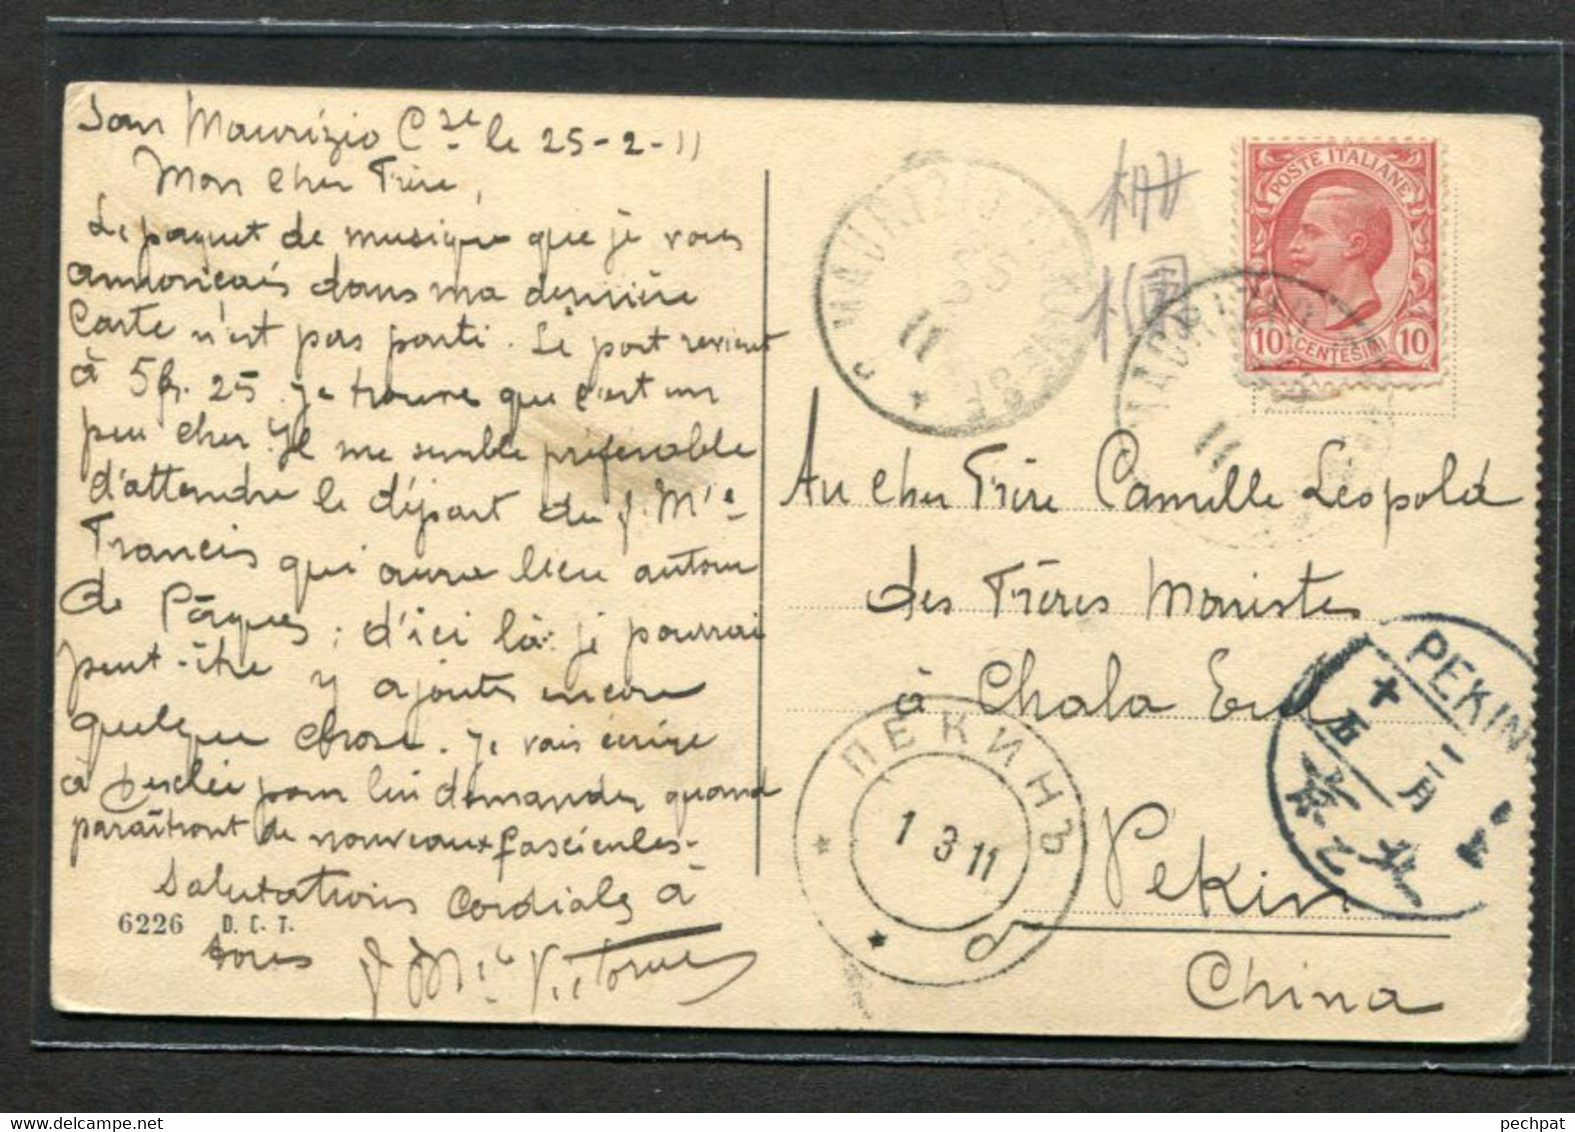 San Maurizio Cse le 25-2-11
Mon cher Frère,
Le paquet de musique que je vous
annonçais dans ma dernière
Carte n'est pas parti. Le port revient
à 5 fr. 25. Je trouve que c'est un
peu cher. Il me semble préférable
d'attendre le départ du f. Mie
Francis qui aura lieu autour
de Pâques; d'ici là je pourrai
peut-être y ajouter encore
quelque chose. Je vais écrire
à pour lui demander quand
paraîtront de nouveaux fascicules.
Salutations cordiales à
tous
f Mie Victorien
6226 D. C. T.
POSTE ITALIANE
10 CENTESIMI 10
MAURIZIO CANAVESE
11
MAURIZIO
11
Au cher Frère Camille Léopold
des Frères Maristes
à Chala Eul
Pekin
China
ПЕКИНЪ
1 3 11
б
PEKIN
北京